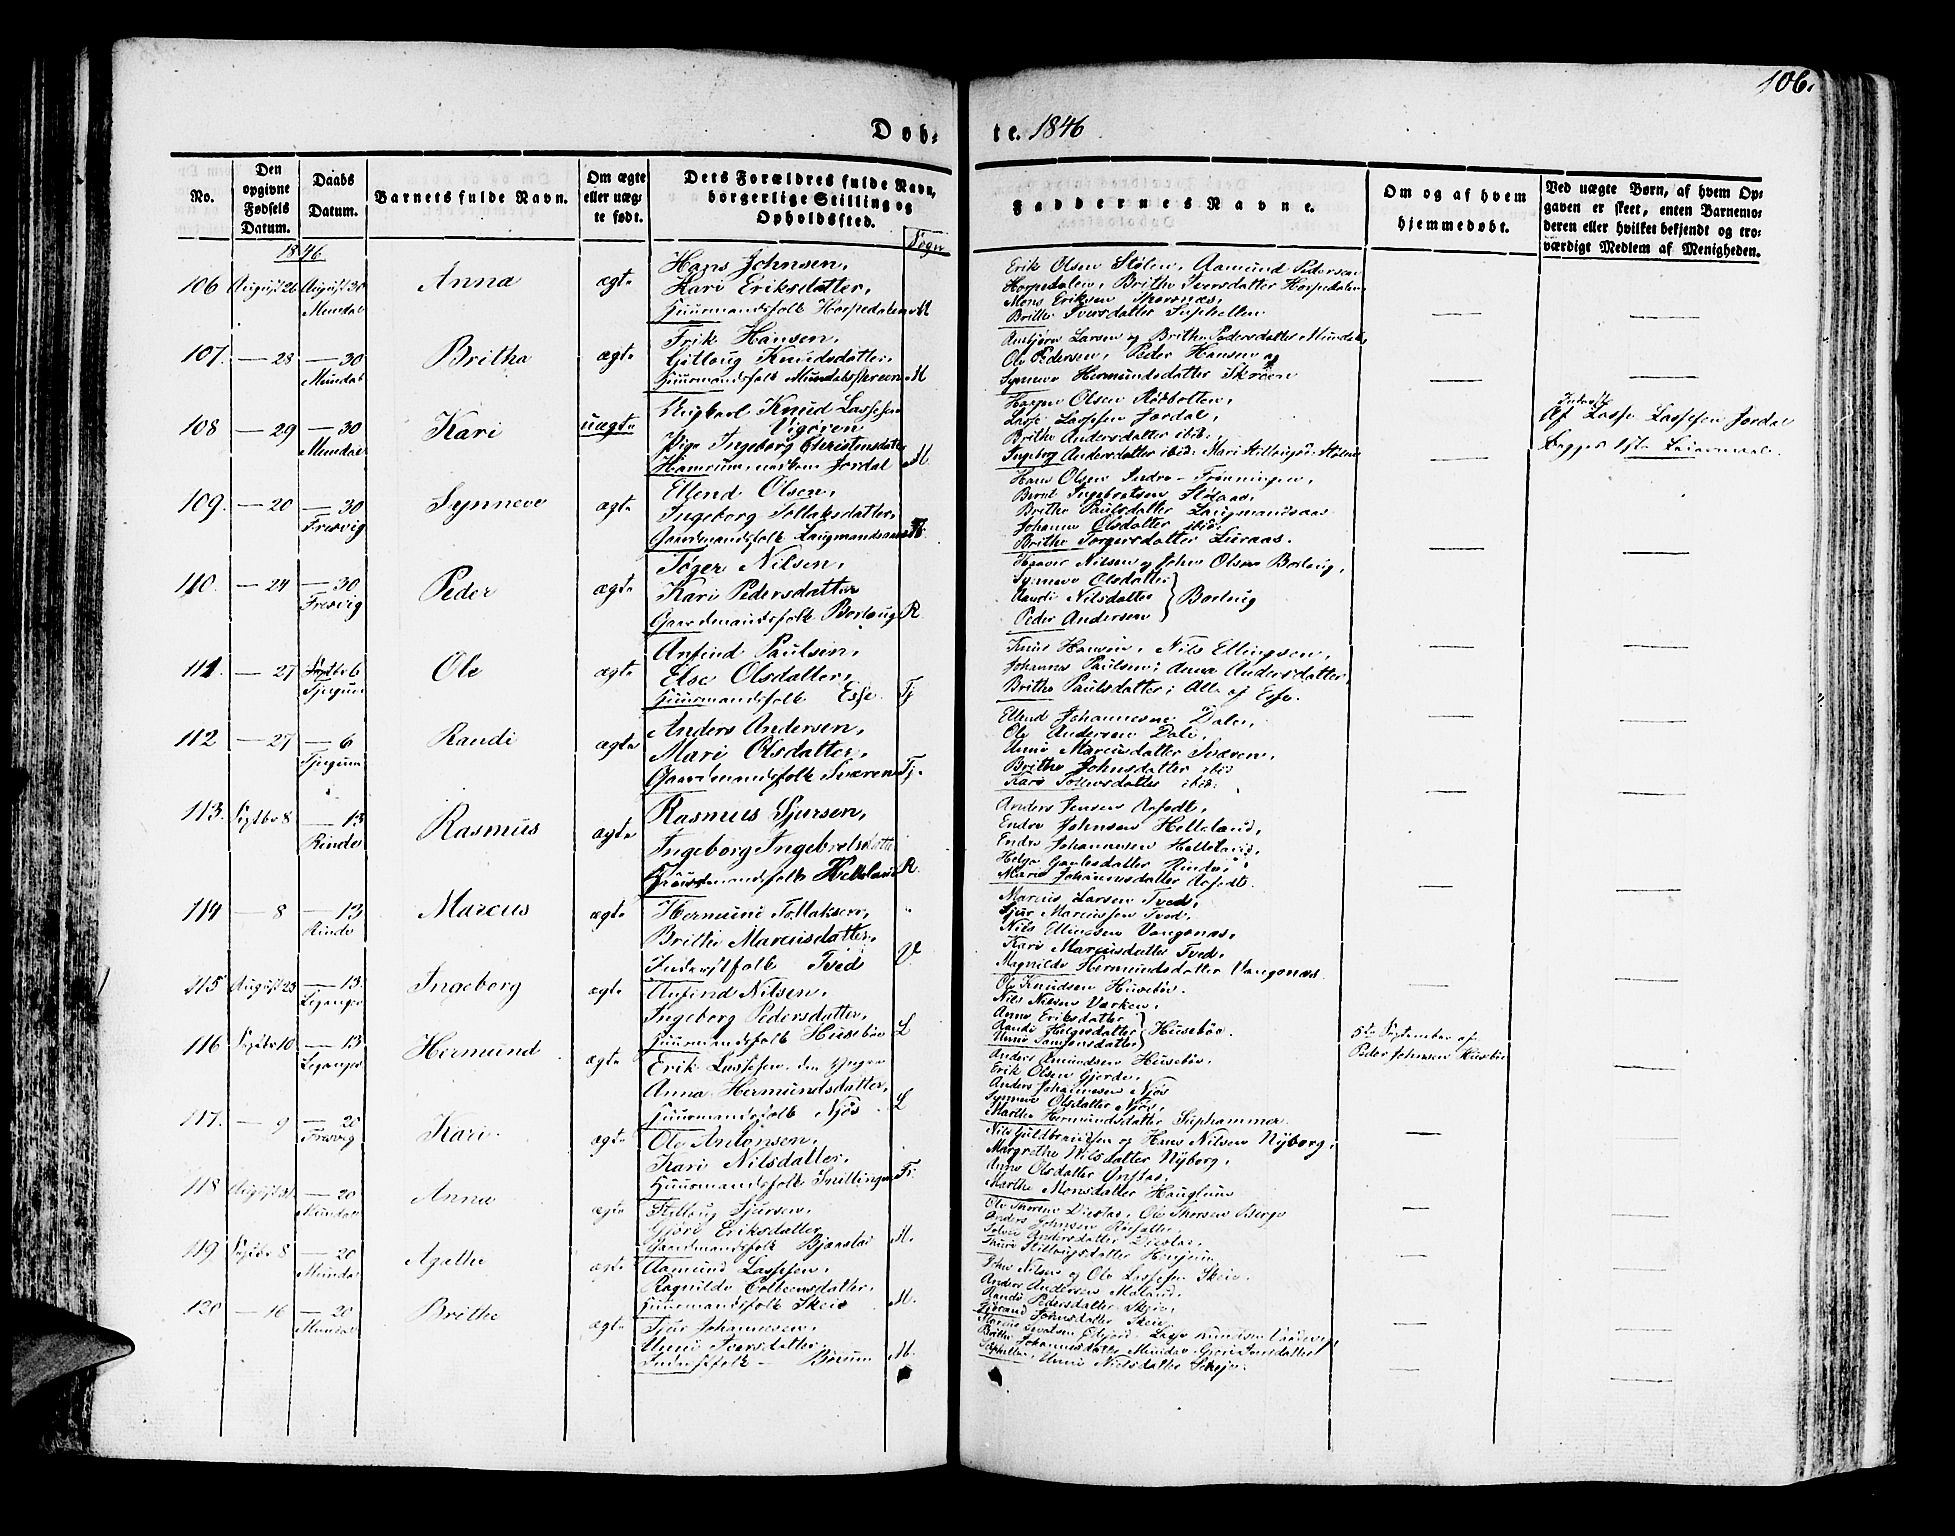 106.
Døb- te. 1846
No.
Den opgivne Fødsels Datum.
Daabs Datum.
Barnets fulde Navn.
Om ægte eller uægte født.
Dets Forældres fulde Navn, borgerlige Stilling og Opholdsted.
Sogn
Faddernes Navne.
Om og af hvem hjemmedøbt.
Ved uægte Børn, af hvem Opgaven er skeet, enten Barnemoderen eller hvilket bekjendt og troværdigt Medlem af Menigheden.
1846
106 August 26 August 30 Mundal Anna ægte
Hans Johnsen,
Kari Eriksdatter,
Huusmandsfolk Horpedalen M
Erik Olsen Stølen, Aamund Pedersen
Horpedalen, Brithe Iversdatter Horpedalen,
Mons Eriksen Thorsnæs,
Brithe Iversdatter Suphellen
107. — 28 — 30 Mundal Britha ægte
Erik Hansen,
Gitloug Knudsdatter,
Huusmandsfolk Mundalsskreen M
Ambjørn Larsen og Brithe Pedersdatter Mundal,
Ole Pedersen, Peder Hansen og
Synneve Hermundsdatter Skreen
108 — 29 — 30 Mundal Kari uægte
Ungkarl Knud Lassesen
Vigøren
Pige Ingeborg Christensdatter
Jordal M.
Olsen
Lasse Lassesen Jordal,
Brithe Andersdatter ibid:
Ingeborg Andersdatter ibid:
Af Lasse Lassesen Jordal
Begges 1ste Leiermaal.
109. — 20 — 30 Fresvig Synneve ægte
Ellend Olsen,
Ingeborg Tollaksdatter,
Gaardmandsfolk
Hans Olsen Indre-Frønningen,
Bernt Ingebretsen
Brithe Paulsdatter Laugmandsaas
Johanne Olsdatter ibid:
Brithe Torgersdatter
110. — 24 — 30 Fresvig Peder ægte
Tøger Nilsen,
Kari Pedersdatter
Gaardmandsfolk Borlaug R
Nilsen og John Olsen Borlaug,
Synneve Olsdatter
Randi Nilsdatter } Borlaug
Peder Andersen
111. — 27 Septbr 6 Tjugum Ole ægte
Anfind Paulsen,
Else Olsdatter,
Huusmandsfolk Esse Tj
Knud Hansen, Nils Ellingsen,
Johannes Paulsen, Anna Andersdatter,
Brithe Paulsdatter; Alle af Esse.
112 — 27 — 6 Tjugum Randi ægte
Anders Andersen,
Mari Olsdatter,
Gaardmandsfolk Sværen Tj.
Ellend Johannesen Dale,
Ole Andersen Dale,
Unni Marcusdatter Sværen,
Brithe Johnsdatter ibid
Kari ibid:
113. Septbr 8 — 13 Rinde Rasmus ægte
Rasmus Sjursen,
Ingeborg Ingebretsdatter
Helleland R.
Anders Jensen
Endre Johnsen Helleland,
Endre Johannesen Helleland,
Helga Rinde,
Mari Johannesdatter
114 — 8 — 13 Rinde Marcus ægte
Hermund Tollaksen,
Brithe Marcusdatter,
Inderstfolk Tved V
Marcus Larsen Tved,
Sjur Marcussen Tved,
Nils Ellingsen Vangsnæs,
Kari Marcusdatter Tved,
Magnilde Hermundsdatter Vangsnæs
115 August 23 — 13 Leganger Ingeborg ægte
Anfind Nilsen,
Ingeborg Pedersdatter,
Huusmandsfolk Husebøe L
Ole Knudsen Husebøe.
Nils Nilsen
Anne Eriksdatter
Randi Helgesdatter } Husebøe.
5te September af
Peder Johnsen Husebøe
116 Septbr 10 — 13 Leganger Hermund ægte
Erik Lassesen den Yngre
Anna Hermundsdatter,
Huusmandsfolk Njøs L
Anders Amundsen Husebøe,
Erik Olsen Gjerde,
Anders Johannesen Njøs
Synneve Olsdatter Njøs,
Marthe Hermundsdatter Suphammer
117. — 9 — 20 Fresvig Kari ægte
Ole Antonsen,
Kari Nilsdatter,
Huusmandsfolk Fr.
Nils Guldbrandsen og Hans Nilsen Nyborg,
Margrethe Nilsdatter Nyborg,
Anne Olsdatter
Marthe Monsdatter
118 August 31 — 20 Mundal Anna ægte
Stilloug Sjursen,
Gjøri Eriksdatter
Gaardmandsfolk M.
Ole Thorsen
Anders Johnsen
119 Septbr 8 — 20 Mundal Agathe ægte
Aamund Lassesen,
Ragnilde
Huusmandsfolk Skeie M.
John Nilsen og Ole Lassesen Skeie,
Anders Andersen
Randi Pedersdatter Skeie,
Johnsdatter Skeie
120 — 16 — 20 Mundal Brithe ægte
Sjur Johannesen,
Unni Iversdatter,
Inderstfolk — Børum M.
Brithe Johannesdatter Mundal
Unni Nilsdatter